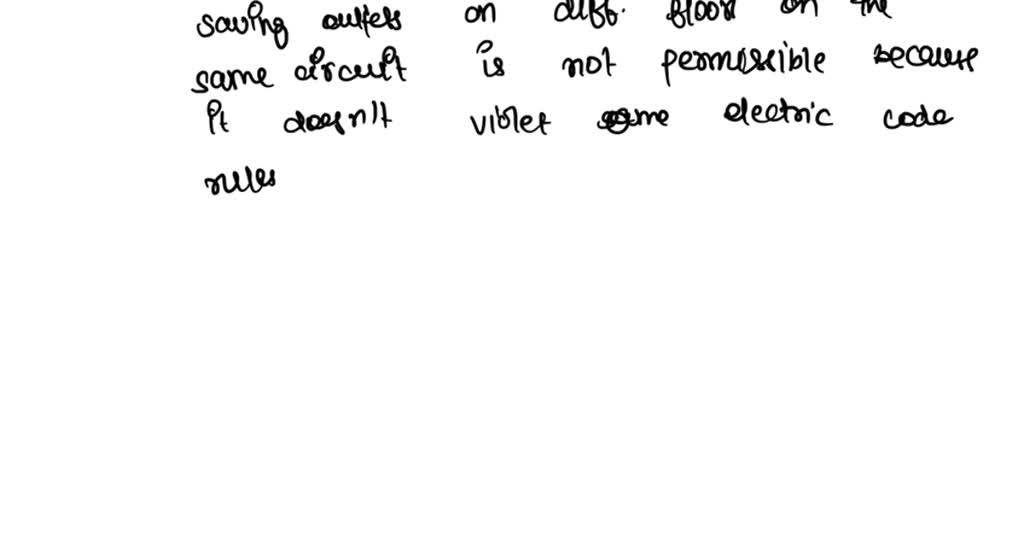 saving outlets on diff. floor on the
same circuit is not permissible because
it doesn't violet some electric code
rules